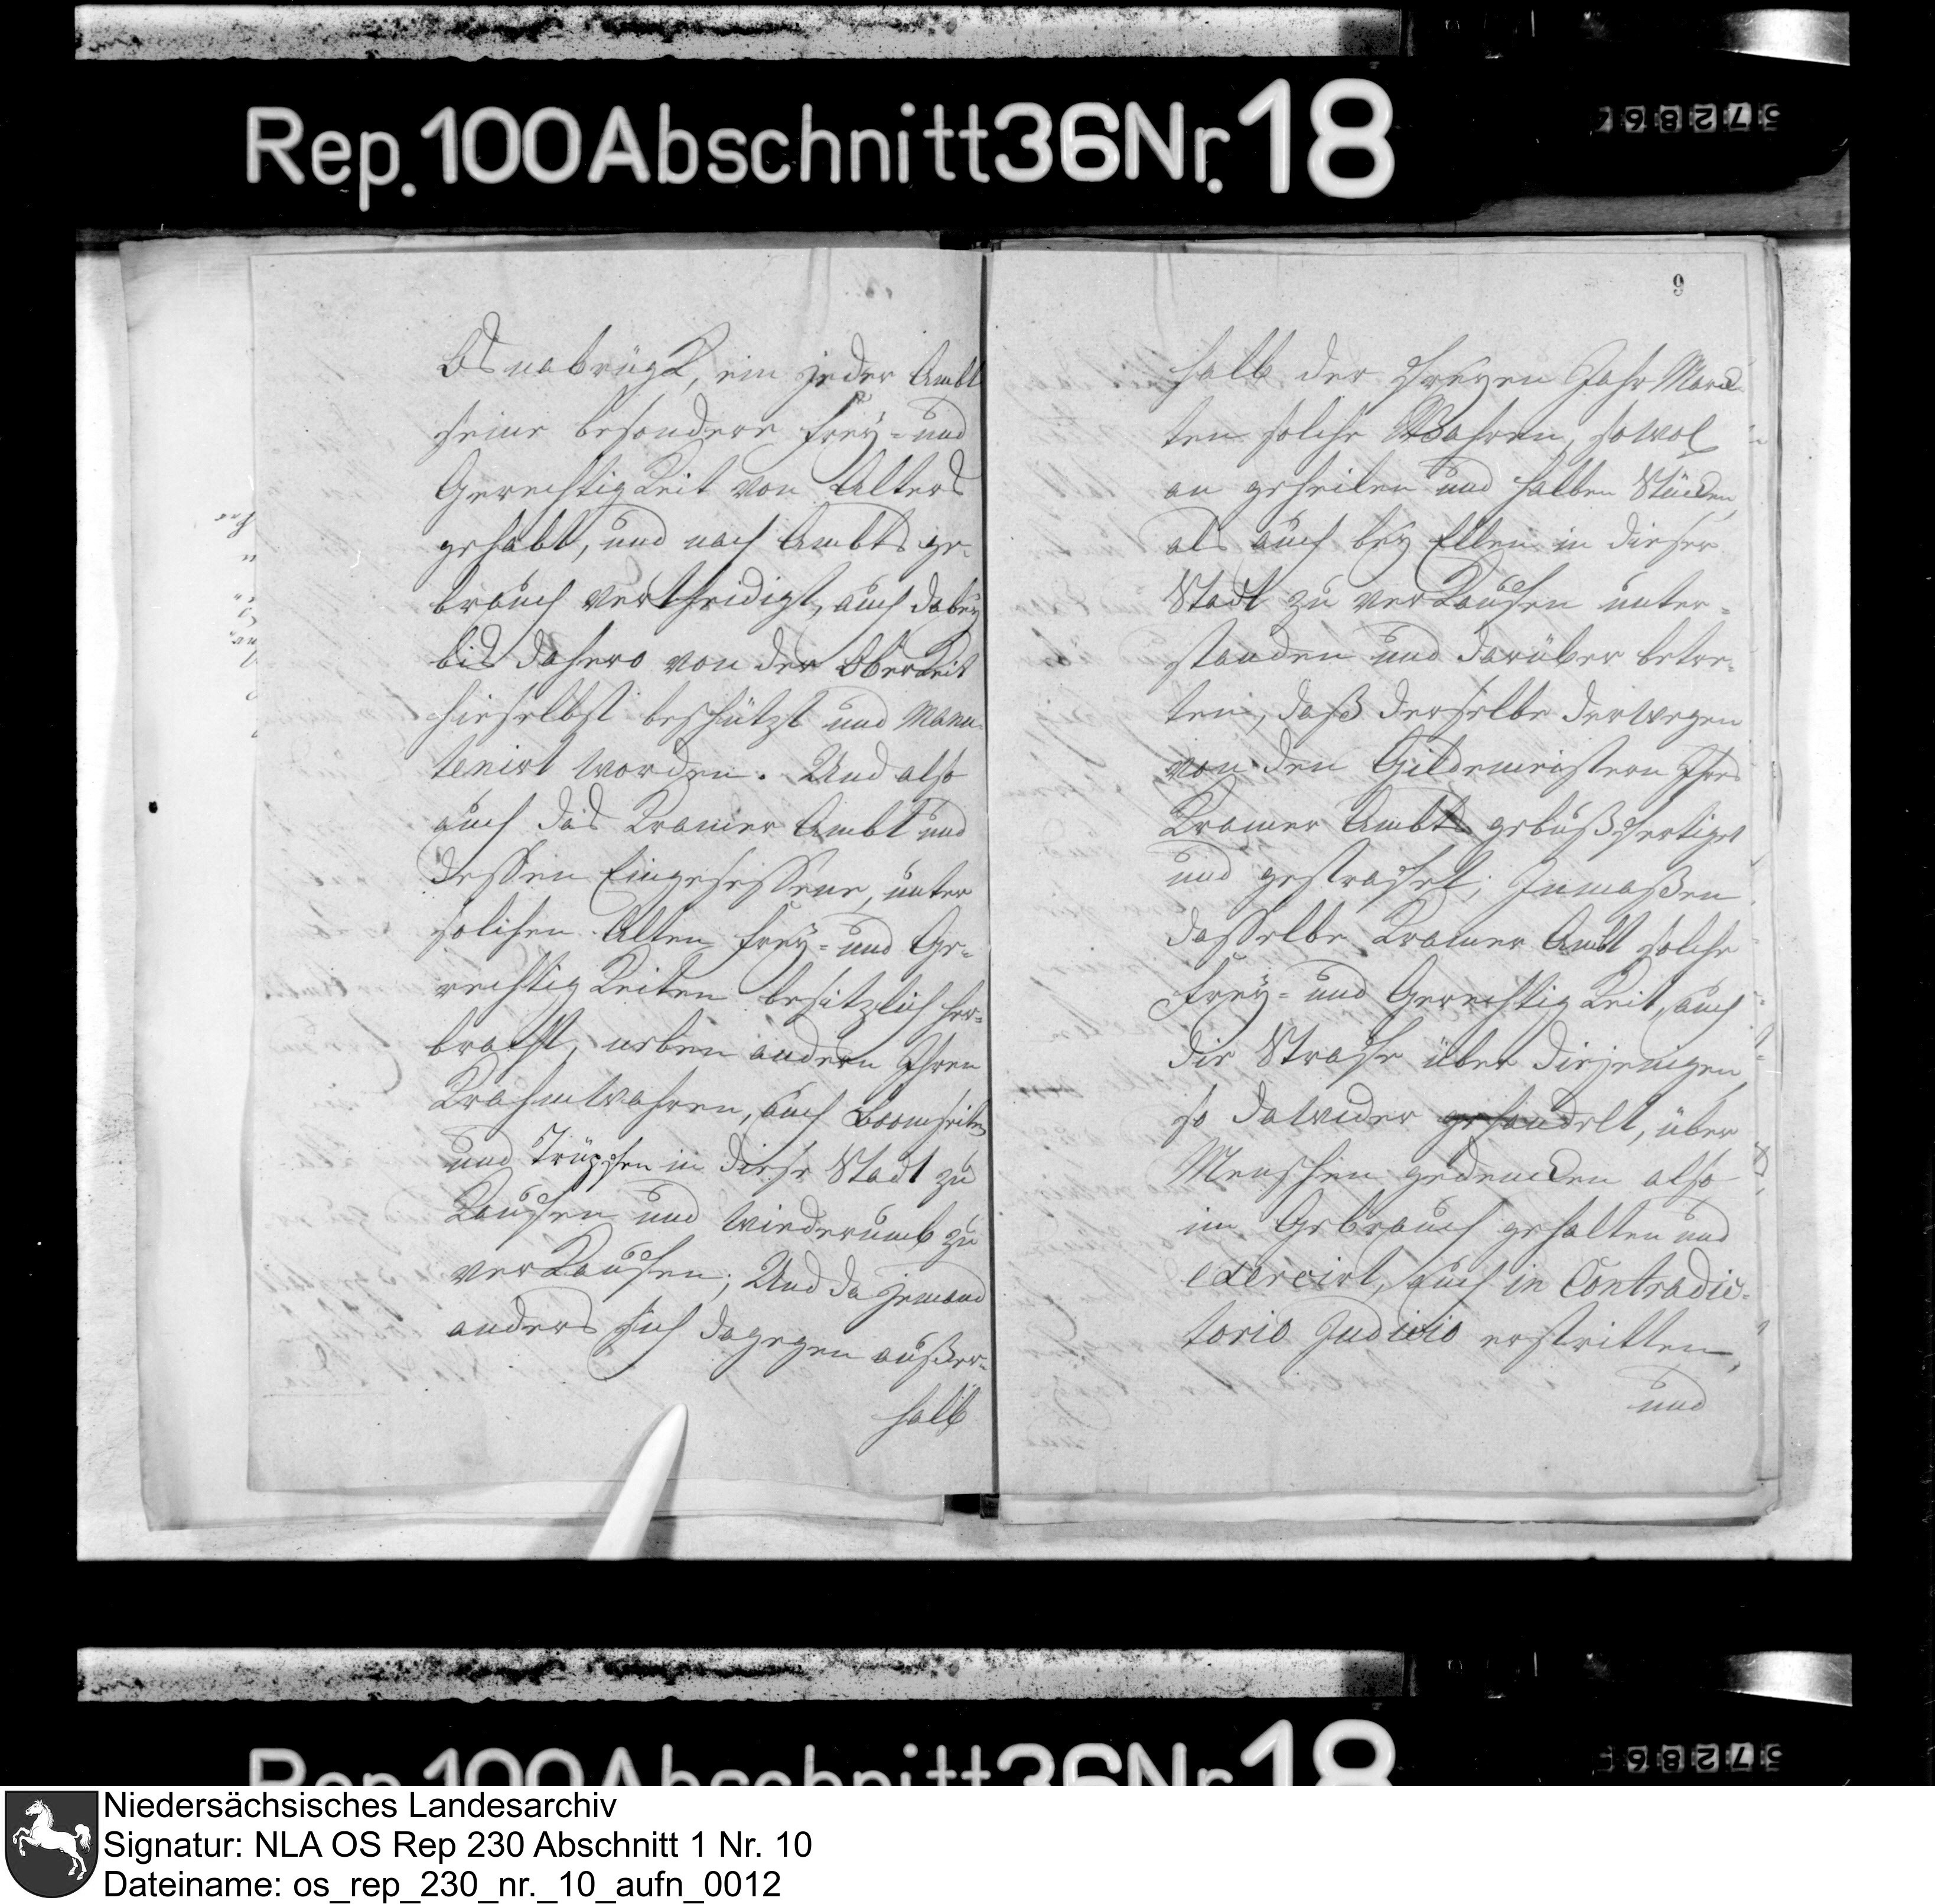 Rep. 100 Abschnitt 36 Nr. 18
57286
Osnabrügk, ein jeder Ambt
seine besondere frey- und
Gerechtigkeit von Alters
gehabt, und nach Ambts ge-
brauch vertheidigt, auch dabey
bis dahero von der Oberkeit
hieselbst beschützt und manu-
tenirt worden. Und also
auch das Kramer Ambt und
dessen Eingesessene, unter
solchen Alten frey- und Ge-
rechtigkeiten besitzlich her-
bracht, neben andern Ihren
Krahmwahren, auch Boomseiten
und Trüpsen in diese Stadt zu
Kauffen und wiederumb zu
verkauffen; Und da jemand
anders sich dagegen außer-
halb
9
halb der freyen Jahr Marck-
ten solche Wahren, sowol
an geheilen und halben Stücken,
als auch bey Ellen in dieser
Stadt zu verkauffen unter-
standen und darüber betre-
ten, daß derselbe derwegen
von den Gildemeistern Ihres
Kramer Ambts gebußfertiget
und gestraffet; Inmaßen
dasselbe Kramer Ambt solche
frey- und Gerechtigkeit, auch
die Straffe über diejenigen,
so dawider gehandelt, über
Menschen gedencken also
im Gebrauch gehalten und
exercirt, auch in Contradic-
torio Judicio erstritten,
und
Rep. 100 Abschnitt 36 Nr. 18
57286
Niedersächsisches Landesarchiv
Signatur: NLA OS Rep 230 Abschnitt 1 Nr. 10
Dateiname: os_rep_230_nr._10_aufn_0012